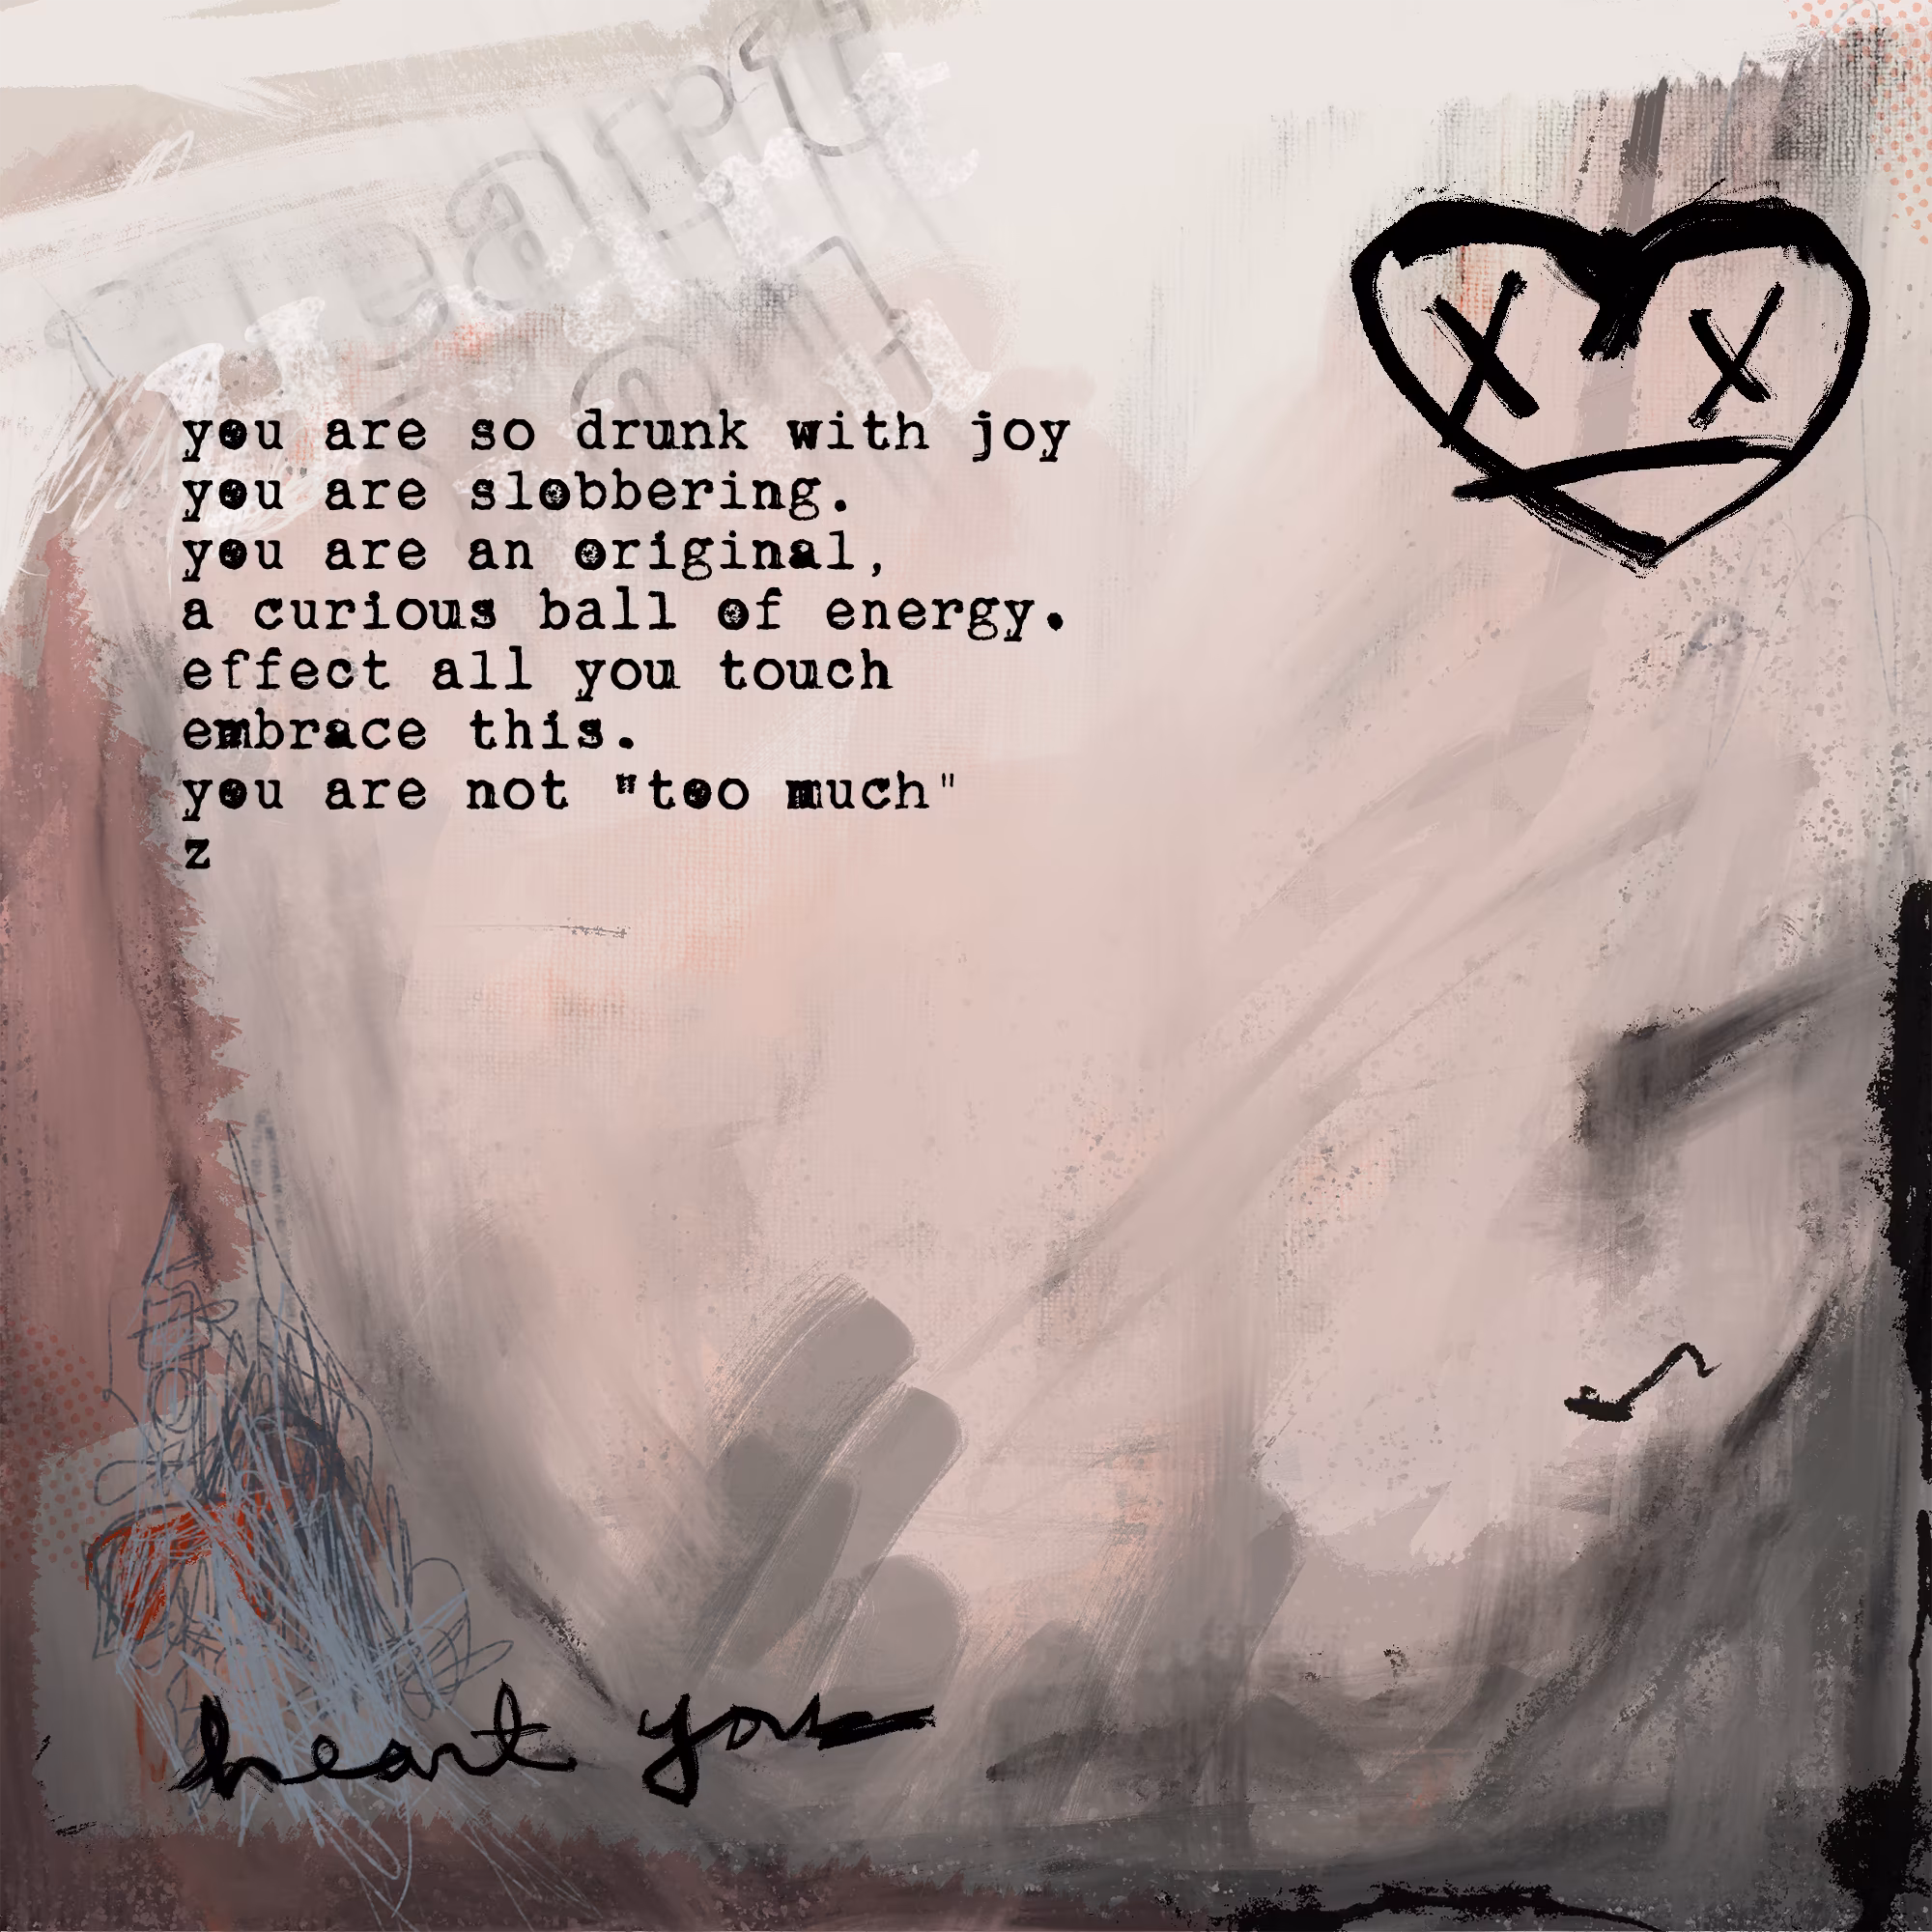 you are so drunk with joy
you are slobbering.
you are an original,
a curious ball of energy.
effect all you touch
embrace this.
you are not "too much"
z
heart you